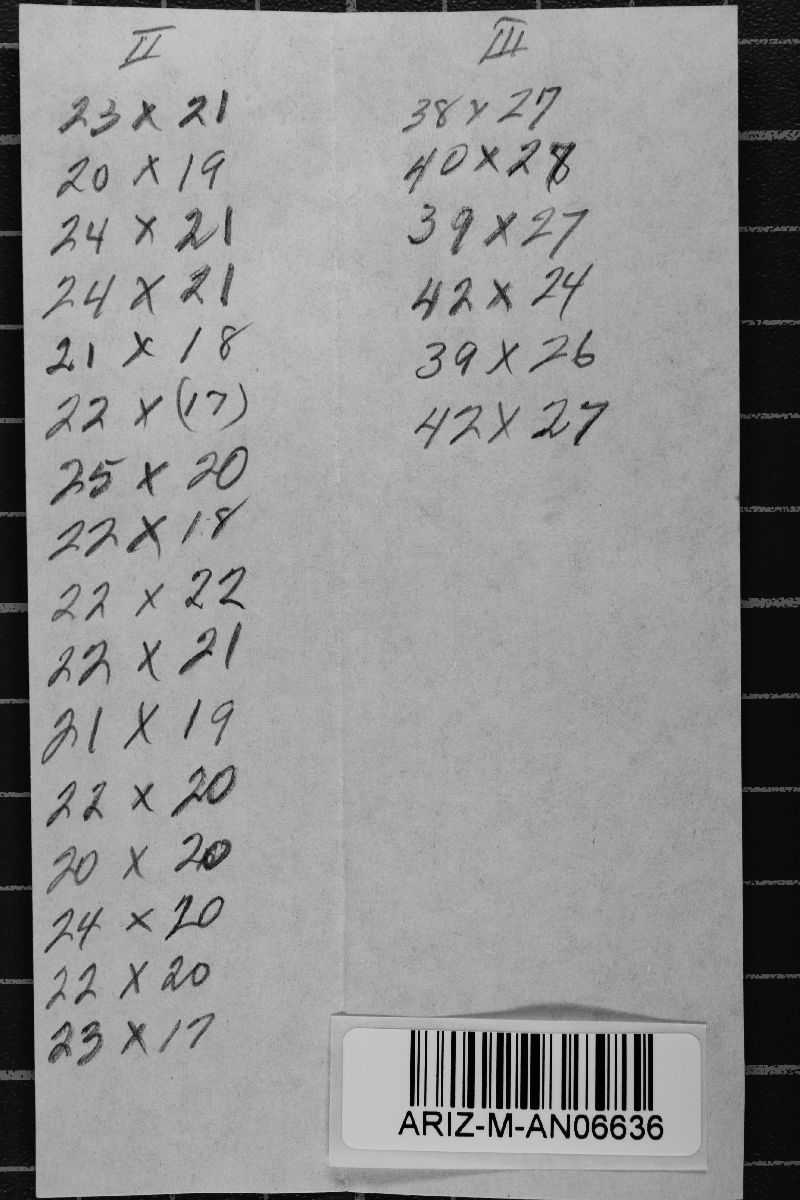 II
23 x 21
20 x 19
24 x 21
24 x 21
21 x 18
22 x (17)
25 x 20
22 x 18
22 x 22
22 x 21
21 x 19
22 x 20
20 x 20
24 x 20
22 x 20
23 x 17
III
38 x 27
40 x 28
39 x 27
42 x 24
39 x 26
42 x 27
ARIZ-M-AN06636